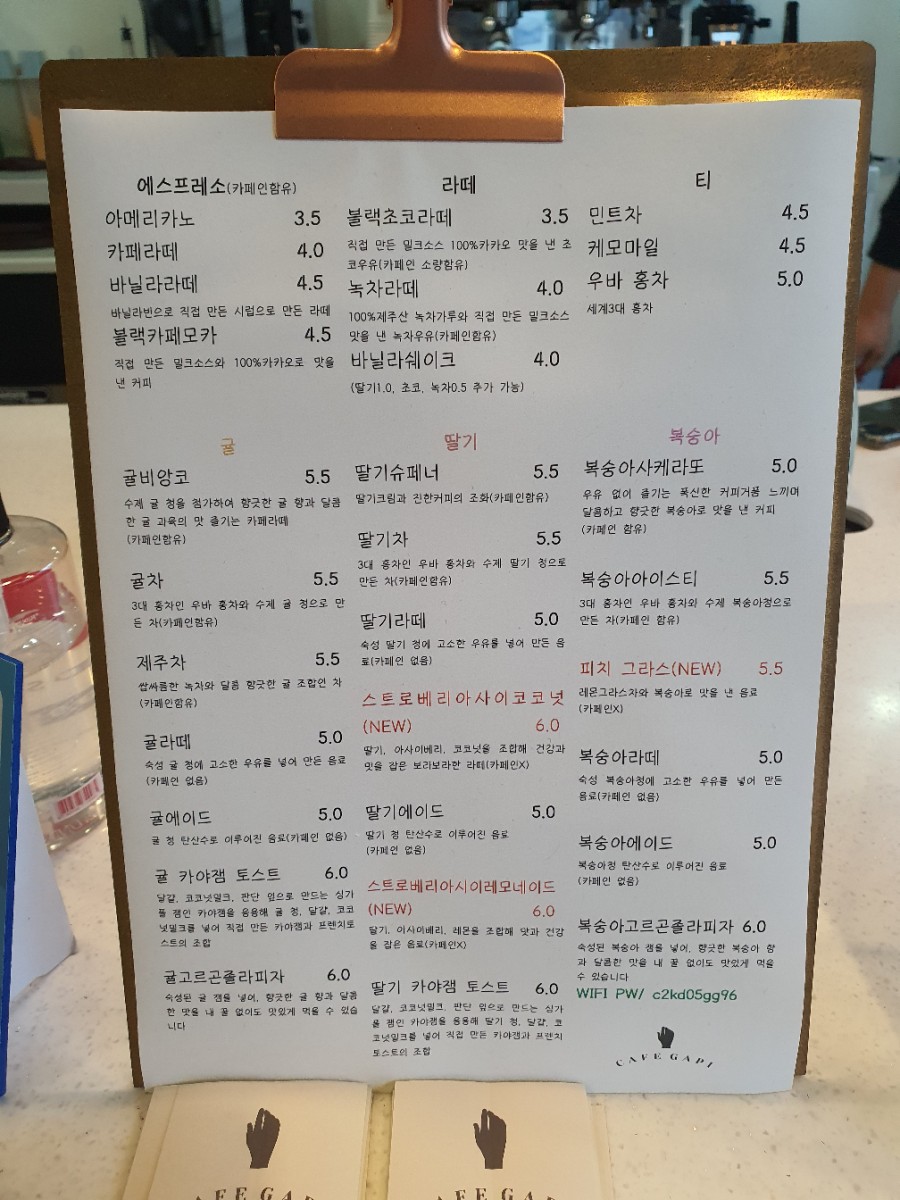 에스프레소(카페인함유)
아메리카노 3.5
카페라떼 4.0
바닐라라떼 4.5
바닐라빈으로 직접 만든 시럽으로 만든 라떼
블랙카페모카 4.5
직접 만든 밀크소스와 100%카카오로 맛을
낸 커피
라떼
블랙초코라떼 3.5
직접 만든 밀크소스 100%카카오 맛을 낸 초
코우유(카페인 소량함유)
녹차라떼 4.0
100%제주산 녹차가루와 직접 만든 밀크소스
맛을 낸 녹차우유(카페인함유)
바닐라쉐이크 4.0
(딸기1.0, 초코, 녹차0.5 추가 가능)
티
민트차 4.5
케모마일 4.5
우바 홍차 5.0
세계3대 홍차
귤
귤비앙코 5.5
수제 귤 청을 첨가하여 향긋한 귤 향과 달콤
한 귤 과육의 맛 즐기는 카페라떼
(카페인함유)
귤차 5.5
3대 홍차인 우바 홍차와 수제 귤 청으로 만
든 차(카페인함유)
제주차 5.5
쌉싸름한 녹차와 달콤 향긋한 귤 조합인 차
(카페인함유)
귤라떼 5.0
숙성 귤 청에 고소한 우유를 넣어 만든 음료
(카페인 없음)
귤에이드 5.0
귤 청 탄산수로 이루어진 음료(카페인 없음)
귤 카야잼 토스트 6.0
달걀, 코코넛밀크, 판단 잎으로 만드는 싱가
폴 잼인 카야잼을 응용해 귤 청, 달걀, 코코
넛밀크를 넣어 직접 만든 카야잼과 프렌치토
스트의 조합
귤고르곤졸라피자 6.0
숙성된 귤 잼를 넣어, 향긋한 귤 향과 달콤
한 맛을 내 꿀 없이도 맛있게 먹을 수 있습
니다
딸기
딸기슈페너 5.5
딸기크림과 진한커피의 조화(카페인함유)
딸기차 5.5
3대 홍차인 우바 홍차와 수제 딸기 청으로
만든 차(카페인함유)
딸기라떼 5.0
숙성 딸기 청에 고소한 우유를 넣어 만든 음
료(카페인 없음)
스트로베리아사이코코넛
(NEW) 6.0
딸기, 아사이베리, 코코넛을 조합해 건강과
맛을 잡은 보라보라한 라떼(카페인X)
딸기에이드 5.0
딸기 청 탄산수로 이루어진 음료
(카페인 없음)
스트로베리아시이레모네이드
(NEW) 6.0
딸기, 아사이베리, 레몬을 조합해 맛과 건강
을 잡은 음료(카페인X)
딸기 카야잼 토스트 6.0
달걀, 코코넛밀크, 판단 잎으로 만드는 싱가
폴 잼인 카야잼을 응용해 딸기 청, 달걀, 코
코넛밀크를 넣어 직접 만든 카야잼과 프렌치
토스트의 조합
복숭아
복숭아사케라또 5.0
우유 없이 즐기는 폭신한 커피거품 느끼며
달콤하고 향긋한 복숭아로 맛을 낸 커피
(카페인 함유)
복숭아아이스티 5.5
3대 홍차인 우바 홍차와 수제 복숭아청으로
만든 차(카페인함유)
피치 그라스(NEW) 5.5
레몬그라스차와 복숭아로 맛을 낸 음료
(카페인X)
복숭아라떼 5.0
숙성 복숭아청에 고소한 우유를 넣어 만든
음료(카페인 없음)
복숭아에이드 5.0
복숭아청 탄산수로 이루어진 음료
(카페인 없음)
복숭아고르곤졸라피자 6.0
숙성된 복숭아 잼를 넣어, 향긋한 복숭아 향
과 달콤한 맛을 내 꿀 없이도 맛있게 먹을
수 있습니다
WIFI PW/ c2kd05gg96
CAFE GAPI